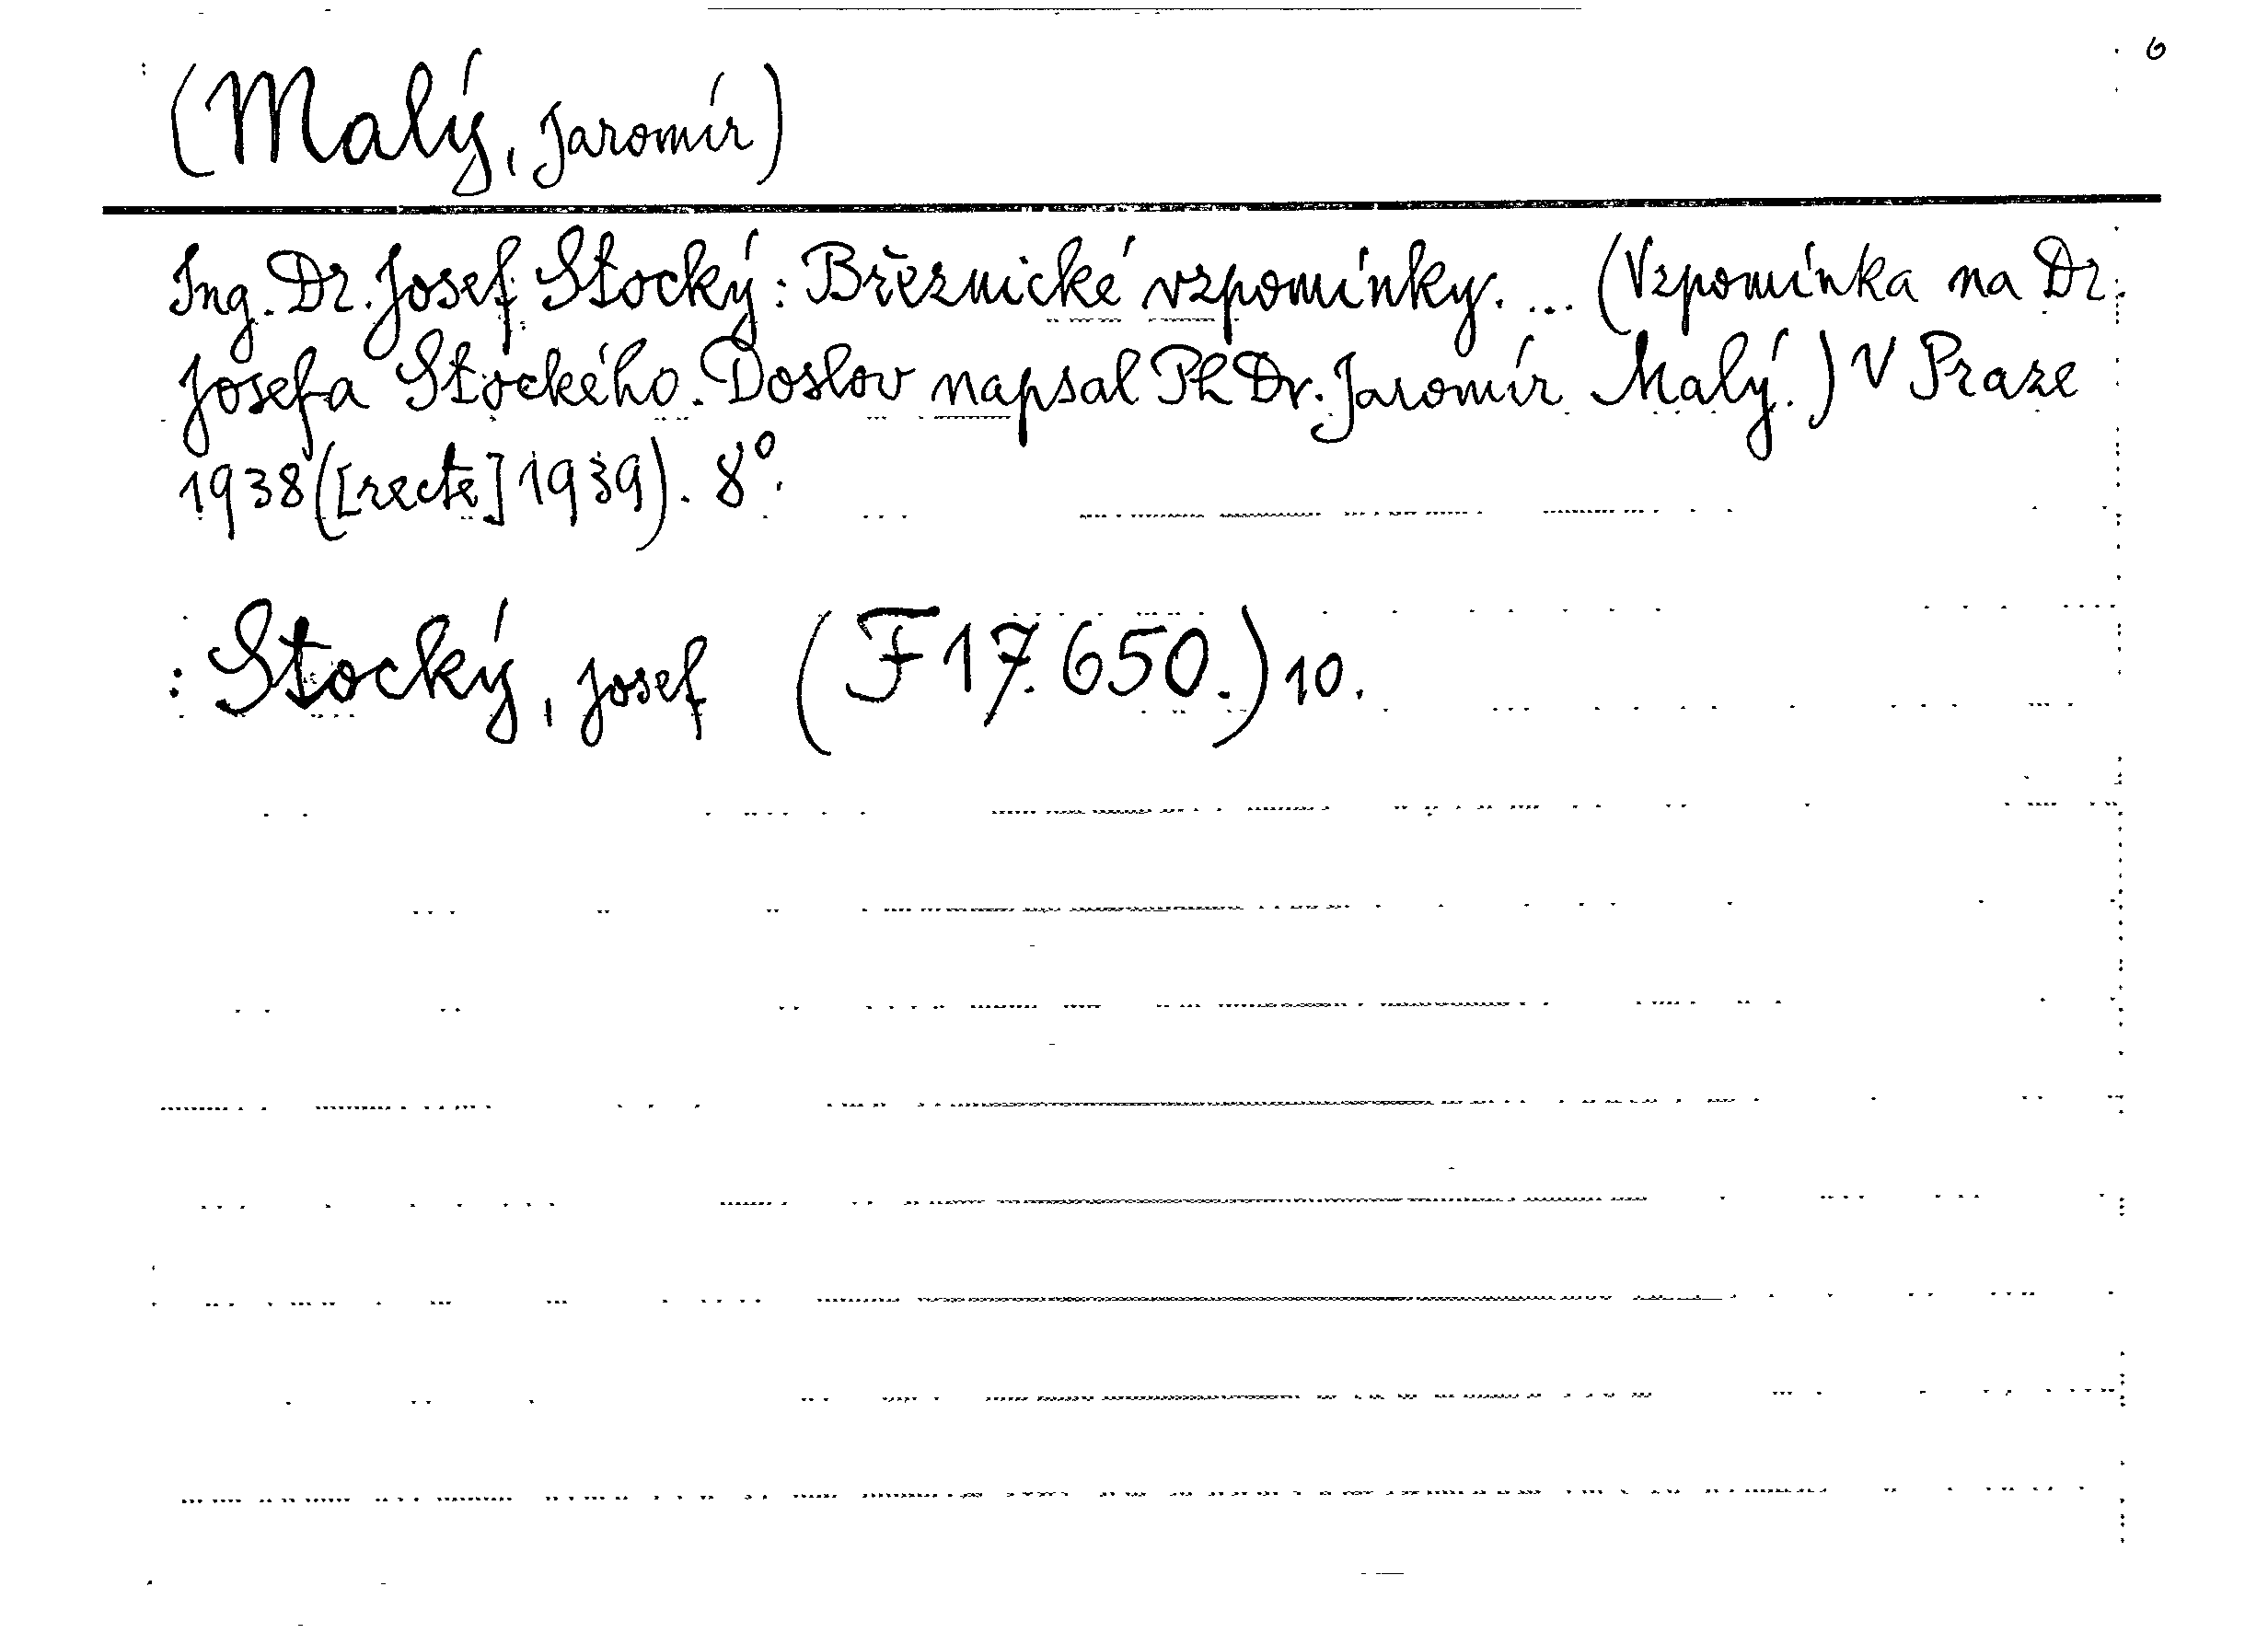 6
(Malý, Jaromír)
Ing. Dr. Josef Stocký: Březnické vzpomínky. ... (Vzpomínka na Dr.
Josefa Stockého. Doslov napsal PhDr. Jaromír Malý.) V Praze
1938 ([recte] 1939). 8°.
: Stocký, Josef (F 17.650.) 10.